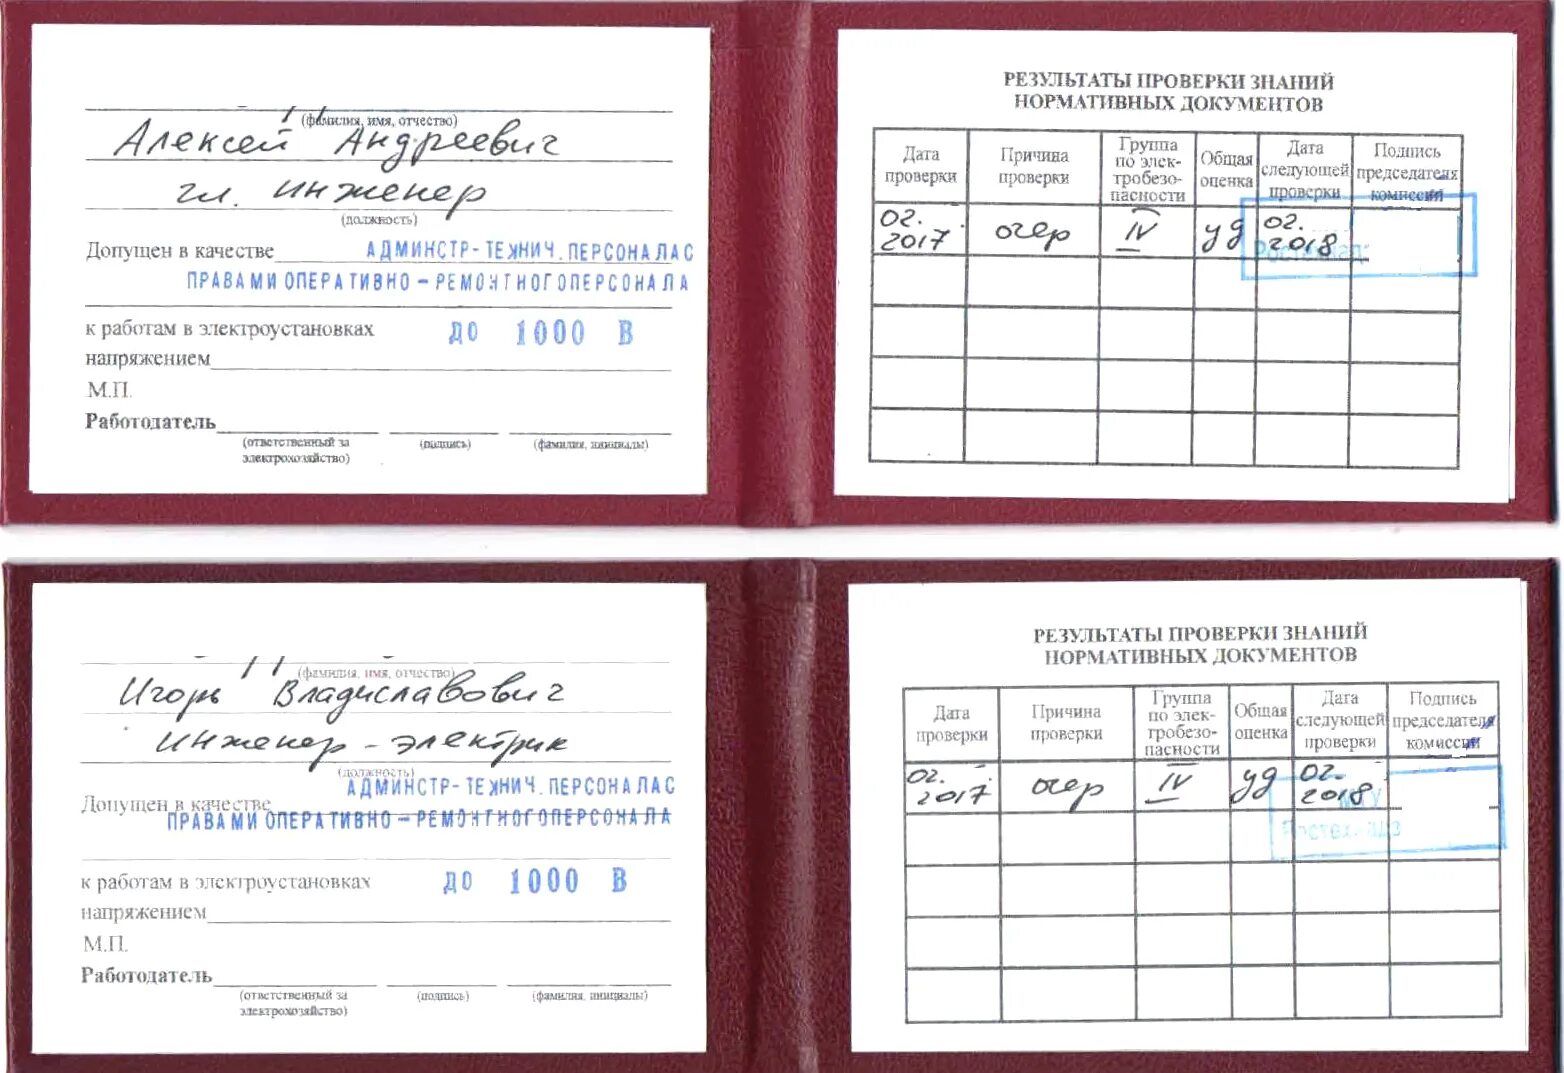 (фамилия, имя, отчество)
Алексей Андреевич
гл. инженер
(должность)
Допущен в качестве АДМИНСТР-ТЕХНИЧ. ПЕРСОНАЛА С
ПРАВАМИ ОПЕРАТИВНО-РЕМОНТНОГО ПЕРСОНАЛА
к работам в электроустановках ДО 1000 В
напряжением
М.П.
Работодатель
(ответственный за (подпись) (фамилия, инициалы)
электрохозяйство)
РЕЗУЛЬТАТЫ ПРОВЕРКИ ЗНАНИЙ
НОРМАТИВНЫХ ДОКУМЕНТОВ
Дата проверки Причина проверки Группа по элек-тробезо-пасности Общая оценка Дата следующей проверки Подпись председателя комиссии
02. 2017 очер IV уд 02. 2018
(фамилия, имя, отчество)
Игорь Владиславович
инженер-электрик
(должность)
Допущен в качестве АДМИНСТР-ТЕХНИЧ. ПЕРСОНАЛА С
ПРАВАМИ ОПЕРАТИВНО-РЕМОНТНОГО ПЕРСОНАЛА
к работам в электроустановках ДО 1000 В
напряжением
М.П.
Работодатель
(ответственный за (подпись) (фамилия, инициалы)
электрохозяйство)
РЕЗУЛЬТАТЫ ПРОВЕРКИ ЗНАНИЙ
НОРМАТИВНЫХ ДОКУМЕНТОВ
Дата проверки Причина проверки Группа по элек-тробезо-пасности Общая оценка Дата следующей проверки Подпись председателя комиссии
02. 2017 очер IV уд 02. 2018